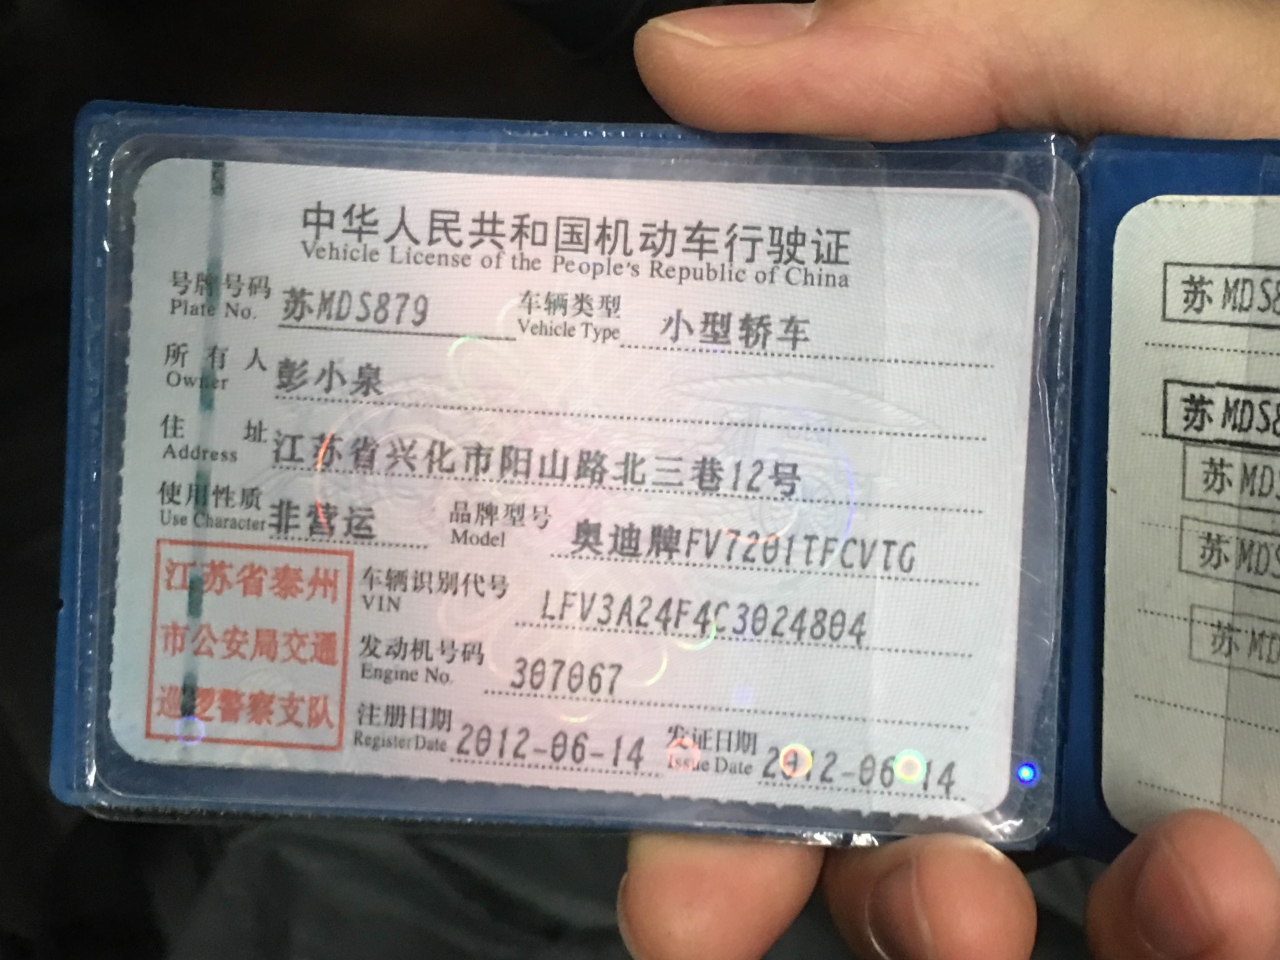 中华人民共和国机动车行驶证
Vehicle License of the People's Republic of China
号牌号码 苏MDS879 车辆类型 小型轿车
Plate No. Vehicle Type
所有人 彭小泉
Owner
住址 江苏省兴化市阳山路北三巷12号
Address
使用性质 非营运 品牌型号 奥迪牌FV7201TFCVTG
Use Character Model
江苏省泰州
市公安局交通
巡逻警察支队
车辆识别代号 LFV3A24F4C3024804
VIN
发动机号码 307067
Engine No.
注册日期 2012-06-14 发证日期 2012-06-14
Register Date Issue Date
苏MDS8
苏MDS8
苏MD
苏MDS
苏MD